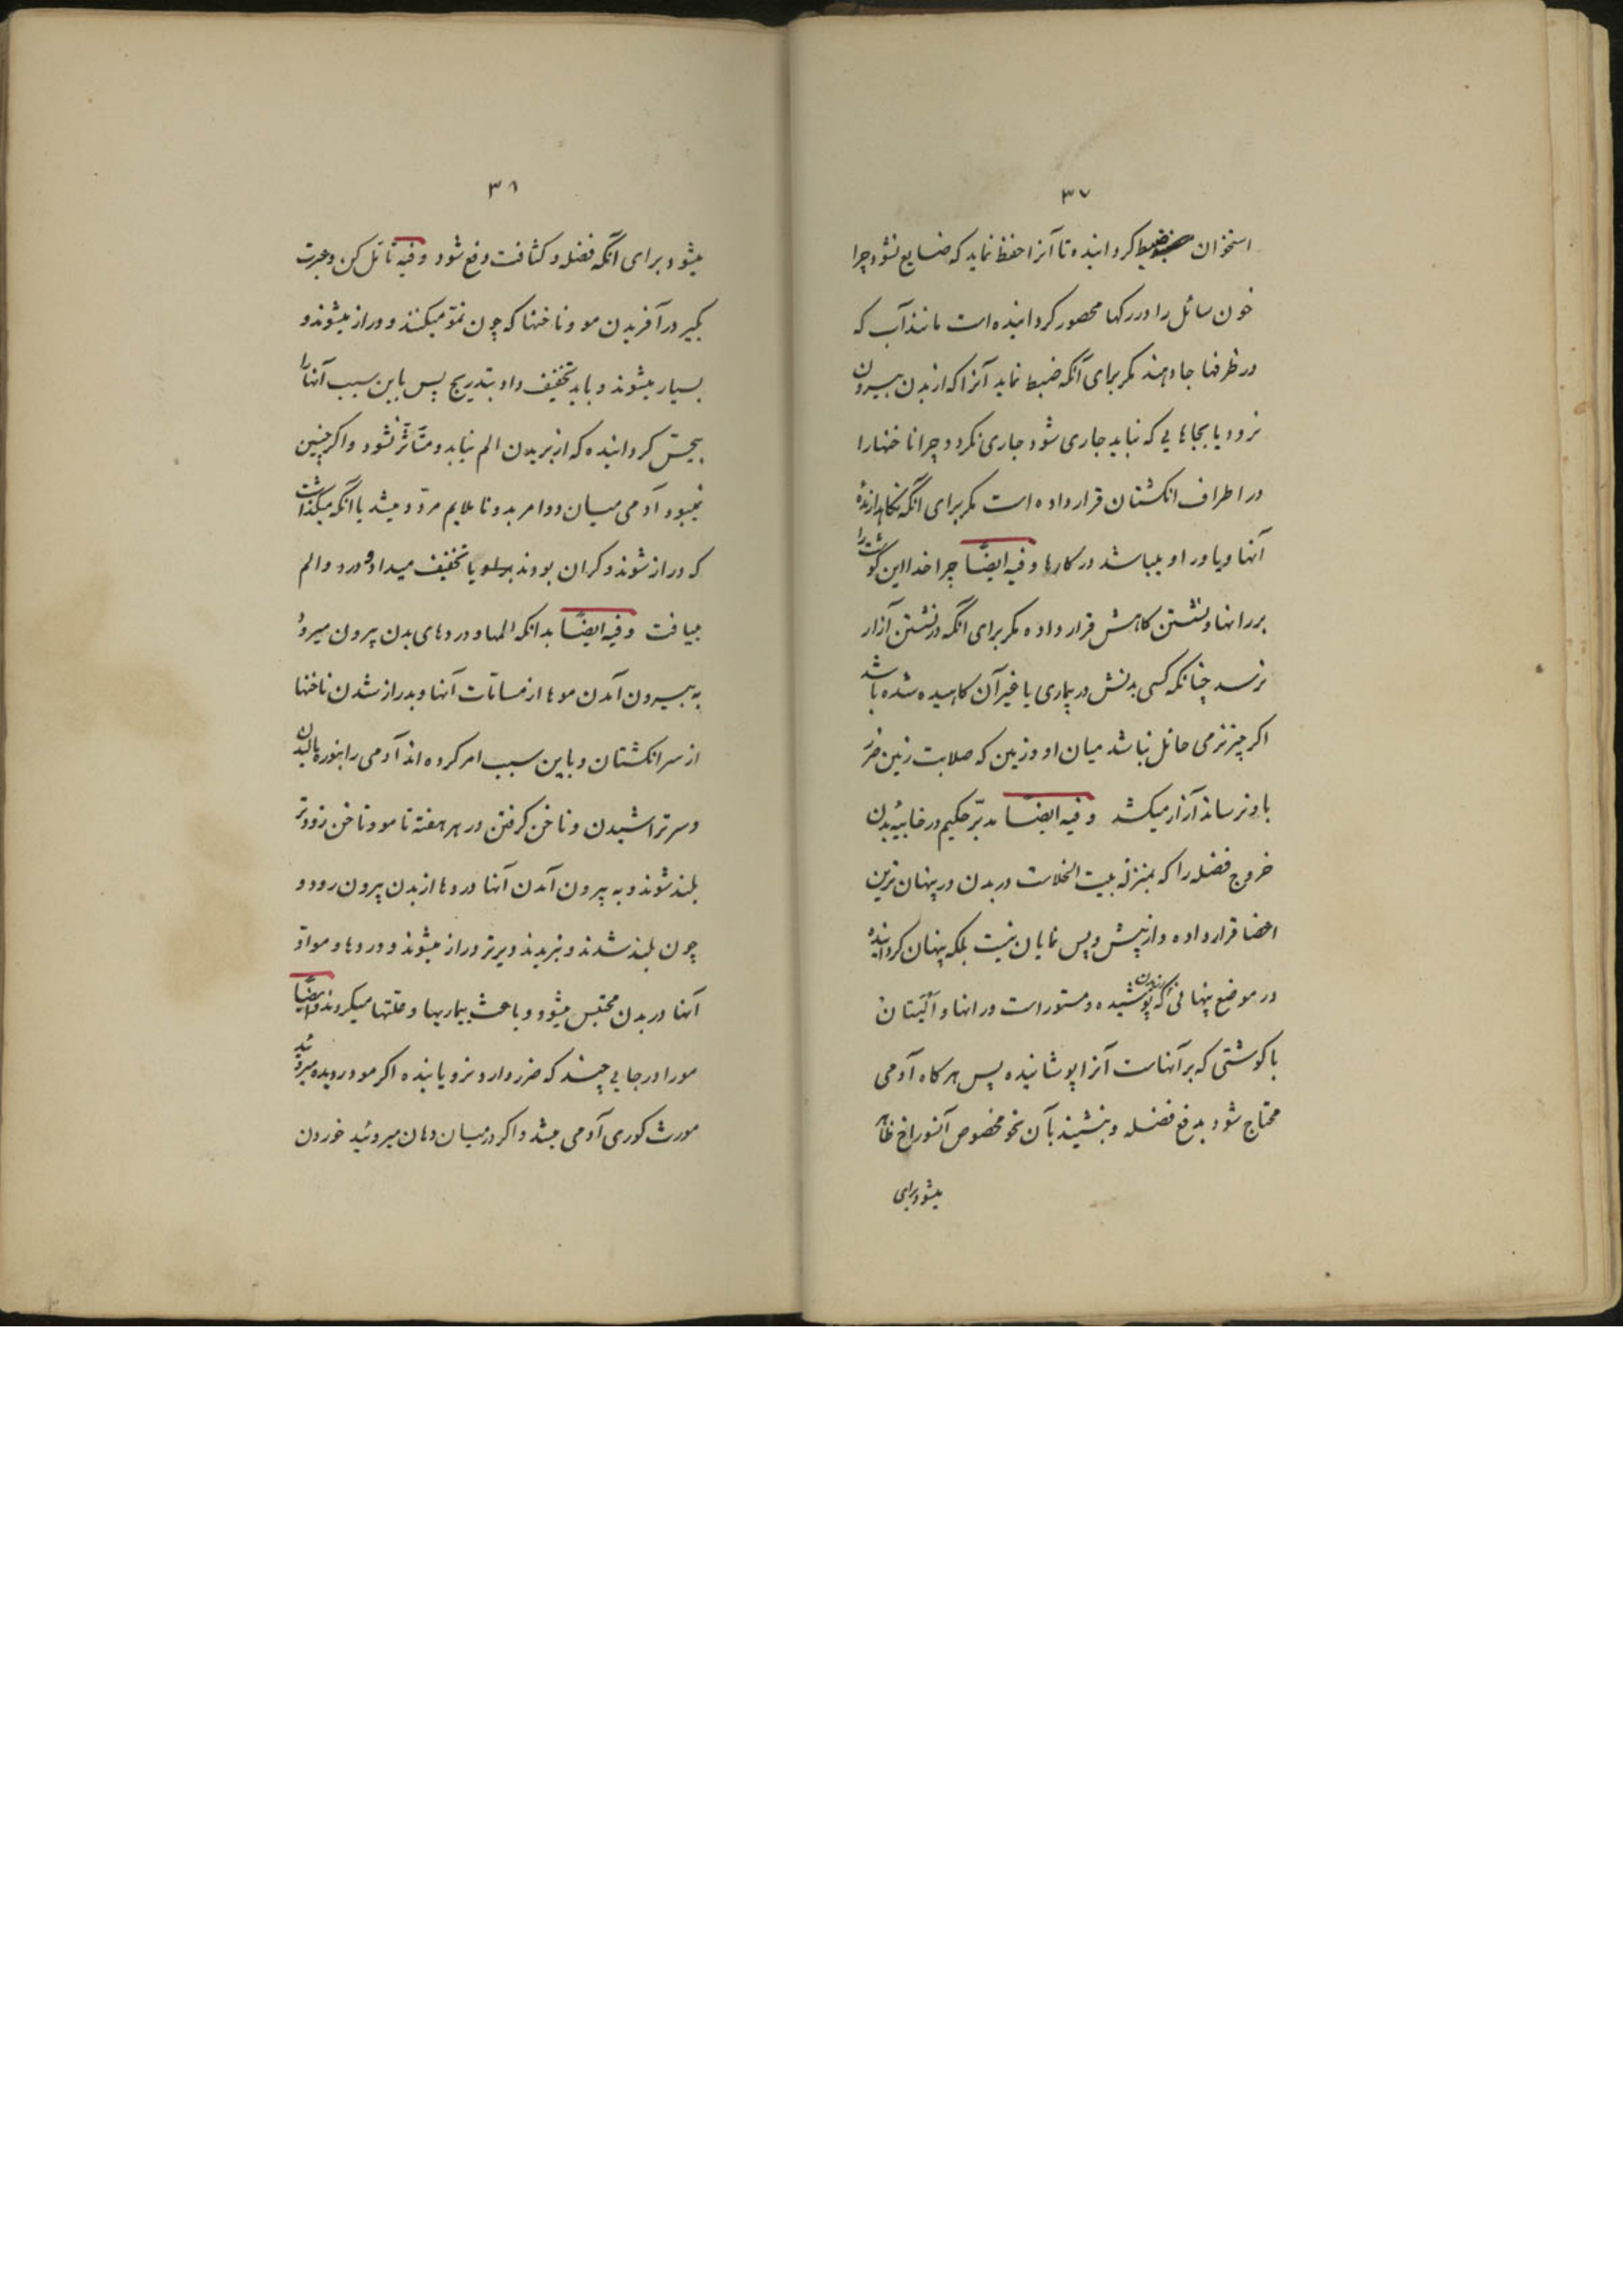 ۳۷
استخوان ضبط کردانیده تا آنرا حفظ نماید که ضایع نشود چرا
خون سائل را در رکها محصور کردانیده است مانند آب که
در ظرفها جا دهند مکر برای آنکه ضبط نماید آنرا که از بدن بیرون
نرود یا بجاهایی که نباید جاری شود جاری نکردد چرا ناخنها را
در اطراف انکشتان قرار داده است مکر برای آنکه نکاهدارنده
آنها و یاور او بباشد در کارها و فیه ایضًا چرا خدا این کوشت را
بر رانها و نشستن کاهش قرار داده مکر برای آنکه در نشستن آزار
نرسد چنانکه کسی بدنش در بیماری یا غیر آن کاهیده شده باشد
اکر چیز نرمی حائل نباشد میان او و زمین که صلابت زمین ضرر
باو نرساند آزار میکشد و فیه ایضًا مدبّر حکیم در خابیهٔ بدن
خروج فضله را که بمنزله بیت الخلاست در بدن در پنهان ترین
اعضا قرار داده و از پیش و پس نمایان نیست بلکه پنهان کردانیده
در موضع پنهانی که پوشیده و مستور است و رانها و اَلْیَتان
با کوشتی که بر آنهاست آنرا پوشانیده پس هر کاه آدمی
محتاج شود بدفع فضله و بنشیند بآن نحو مخصوص آنسوراخ ظاهر
میشود برای
۳۸
میشود برای آنکه فضله و کثافت دفع شود و فیه تامّل کن و عبرت
بکیر در آفریدن مو و ناخنها که چون نموّ میکنند و دراز میشوند و
بسیار میشوند و باید تخفیف داد بتدریج پس باین سبب آنها را
بیحسّ کردانیده که از بریدن الم نیابد و متأثر نشود و اکر چنین
نمیبود آدمی میان دو امر بد و ناملایم مردّد میشد یا آنکه میکذاشت
که دراز شوند و کران بودند یا تخفیف میداد و درد و الم
مییافت و فیه ایضًا بدانکه المها و دردهای بدن بیرون میرود
به بیرون آمدن موها از مسامات آنها و بدراز شدن ناخنها
از سر انکشتان و باین سبب امر کرده اند آدمی را بنوره مالیدن
و سر تراشیدن و ناخن کرفتن در هر هفته تا مو و ناخن زودتر
بلند شوند و به بیرون آمدن آنها دردها از بدن بیرون رود و
چون بلند شدند و نبریدند دیرتر دراز میشوند و دردها و موادّ
آنها در بدن محتبس میشود و باعث بیماریها و علّتها میکردند و ایضًا
مو را در جایی چند که ضرر دارد نرویانیده اکر مو در دیده میروئید
مورث کوری آدمی میشد و اکر در میان دهان میروئید خوردن